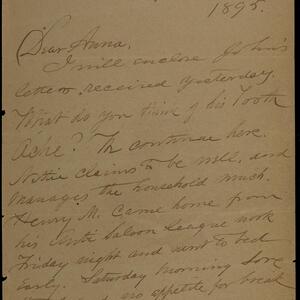 1895.
Dear Anna,
I will enclose John's
letter, received yesterday.
What do you think of his Tooth
Ache? We continue here.
Nettie claims to be well, and
manages the household much.
Henry M. Came home from
his Anti Saloon League work
Friday night and went to bed
Early. Saturday morning Sore
no appetite for break